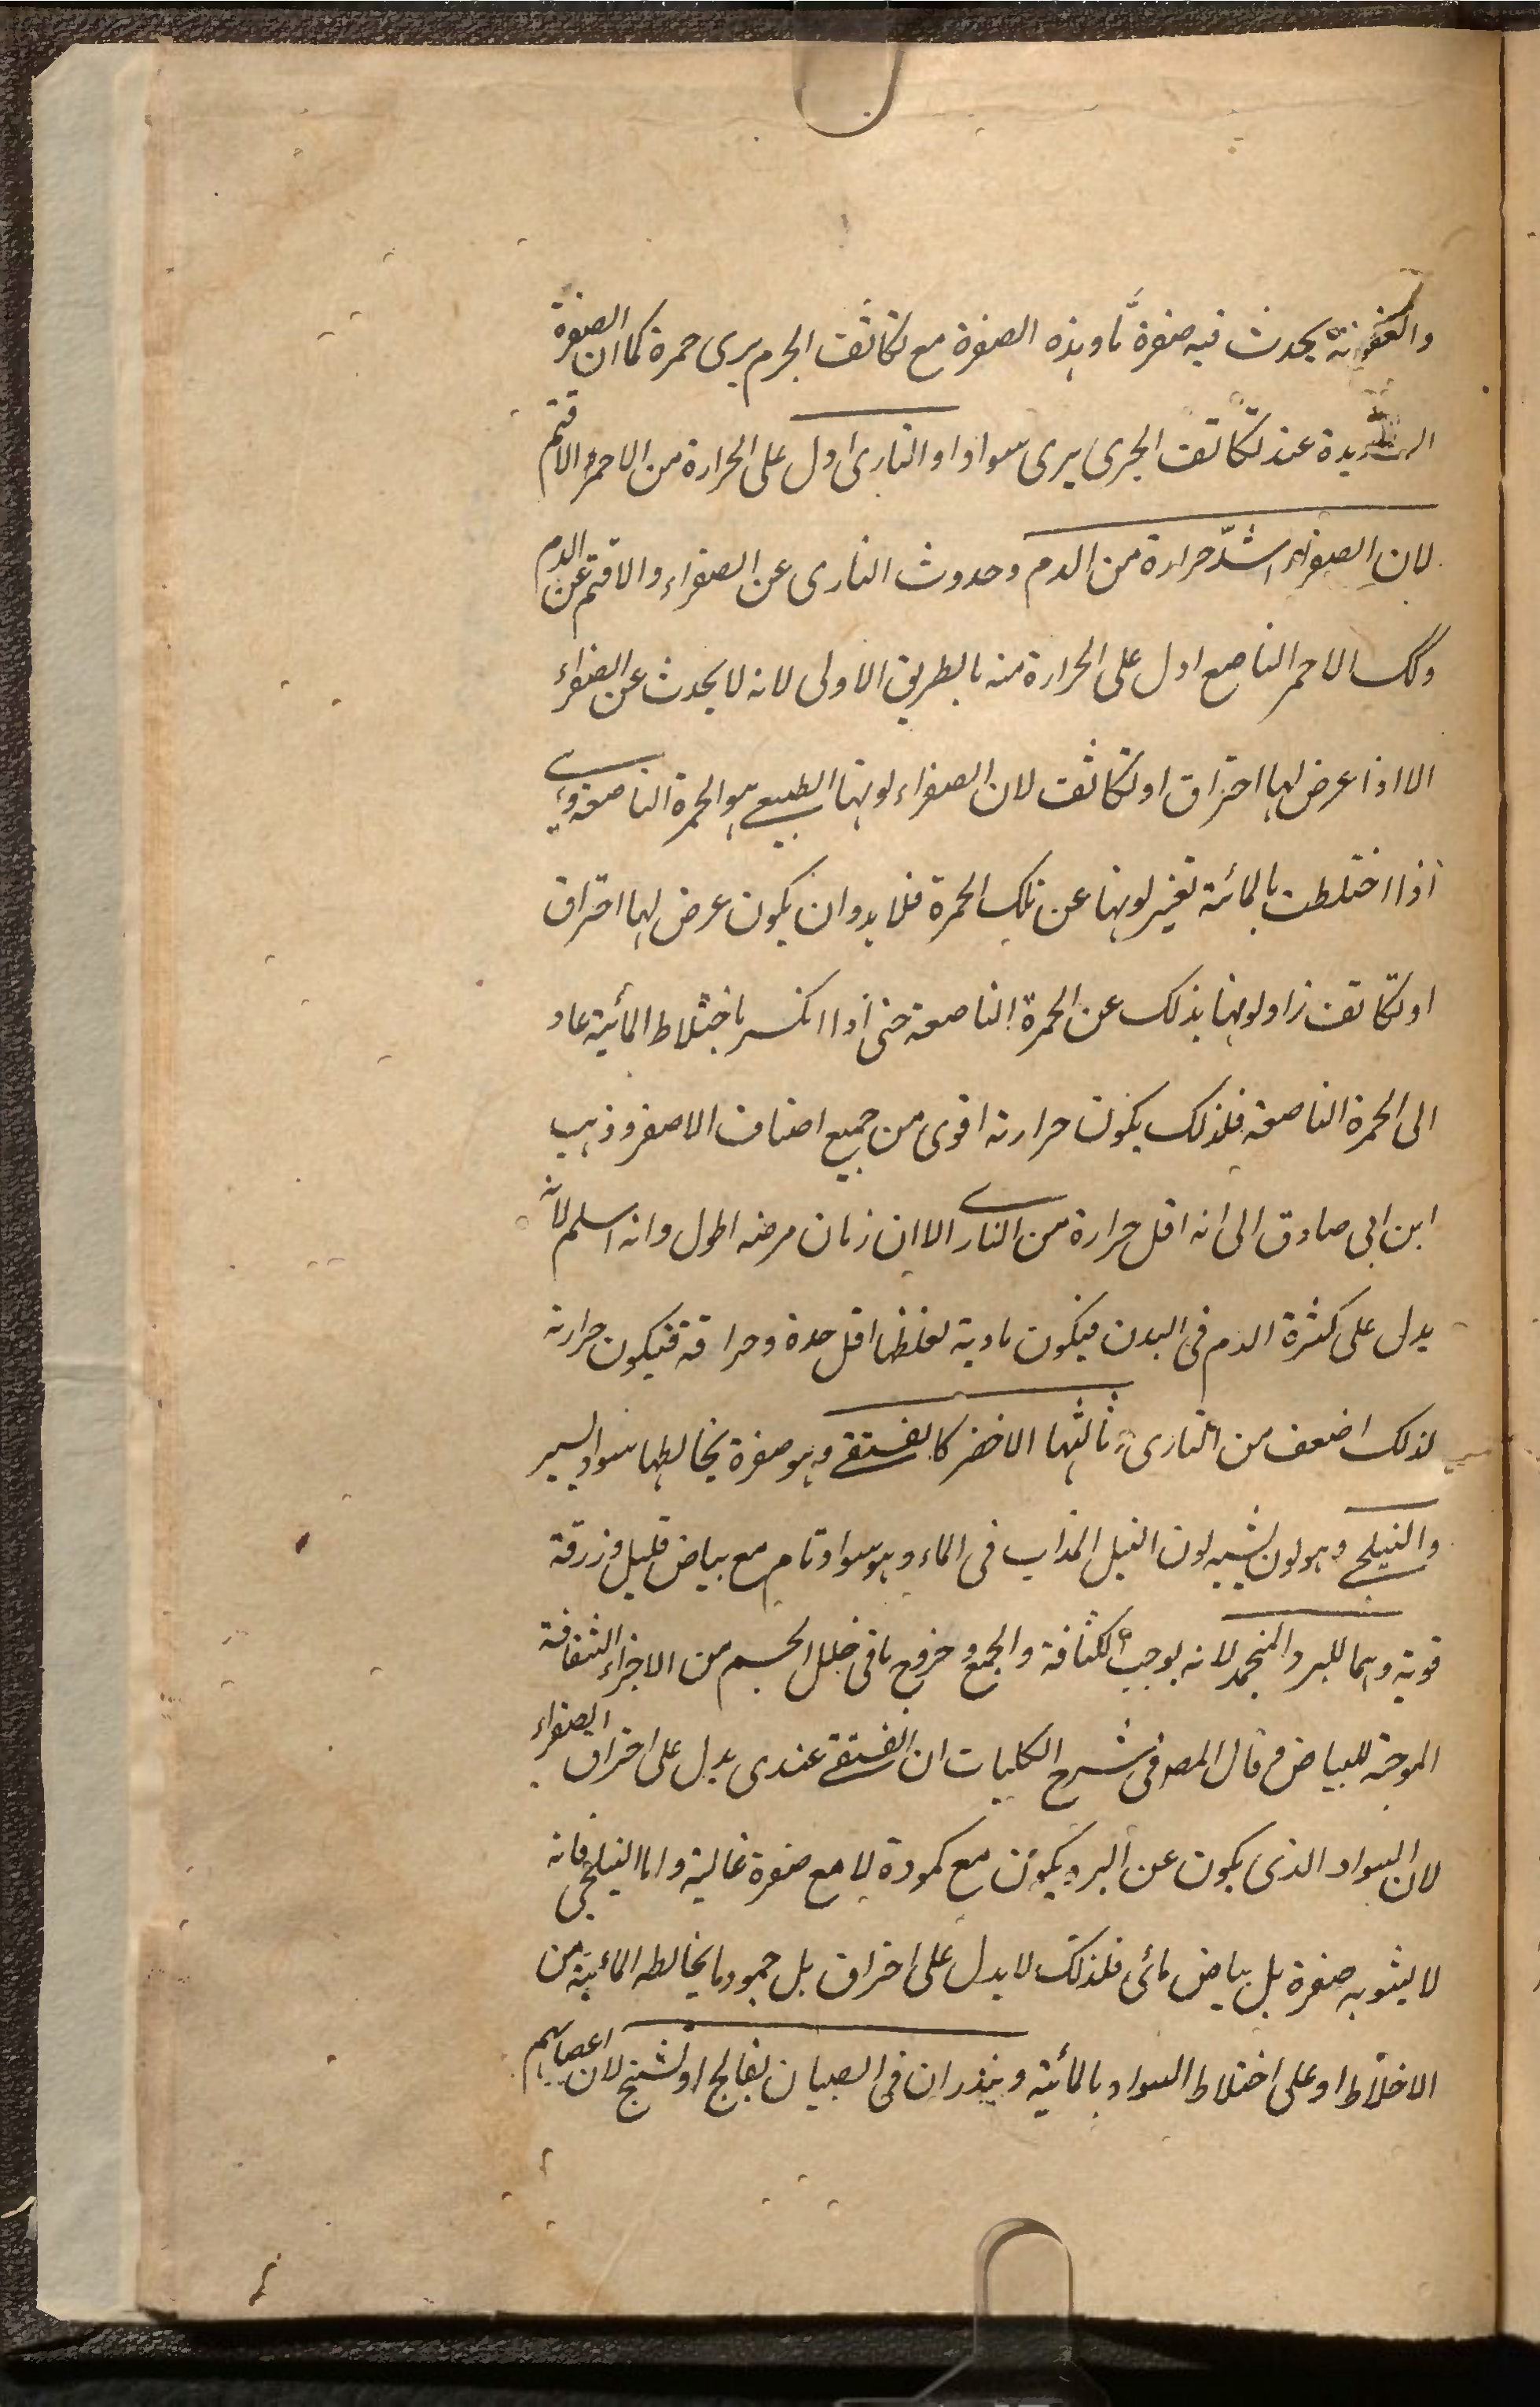 والعفونة يحدث فيه صفرة ما وهذه الصفرة مع تكاثف الجرم يرى حمرة كما ان الصفرة
الشديدة عند تكاثف الجرى يرى سوادا والنارى ادل على الحرارة من الاحمر الاقتم
لان الصفراء اشدّ حرارة من الدم وحدوث النارى عن الصفراء والاقتم عن الدم
وكك الاحمر الناصع ادل على الحرارة منه بالطريق الاولى لانه لا يحدث عن الصفراء
الا اذا عرض لها احتراق او تكاثف لان الصفراء لونها الطبيعي هو الحمرة الناصعة وهي
اذا اختلطت بالمائية تغير لونها عن تلك الحمرة فلا بد وان يكون عرض لها احتراق
او تكاثف زاد لونها بذلك عن الحمرة الناصعة حتى اذا انكسر باختلاط المائية عاد
الى الحمرة الناصعة فلذلك يكون حرارته اقوى من جميع اصناف الاصفر وذهب
ابن ابى صادق الى انه اقل حرارة من الناري الا ان زمان مرضه اطول وانه اسلم لانه
يدل على كثرة الدم فى البدن فيكون مادية لغلظها اقل حدة وحراقة فتكون حرارته
لذلك اضعف من النارى وثالثها الاخضر كالفستقي وهو صفرة يخالطها سواد يسير
والنيلجي وهو لون يشبه لون النيل المذاب فى الماء وهو سواد تام مع بياض قليل وزرقة
قوية وهما للبرد المنجمد لانه يوجب الكثافة والجمع وخروج ما فى خلل الجسم من الاجزاء الشفافة
الموجبة للبياض قال المص فى شرح الكليات ان الفستقي عندى يدل على احتراق الصفراء
لان السواد الذى يكون عن البرد يكون مع كمودة لا مع صفرة غالبة واما النيلجى فانه
لا يشوبه صفرة بل بياض مائى فلذلك لا يدل على احتراق بل جمود ما يخالطه المائية من
الاخلاط او على اختلاط السواد بالمائية وينذران فى الصبيان بفالج او تشنج لان اعصابهم